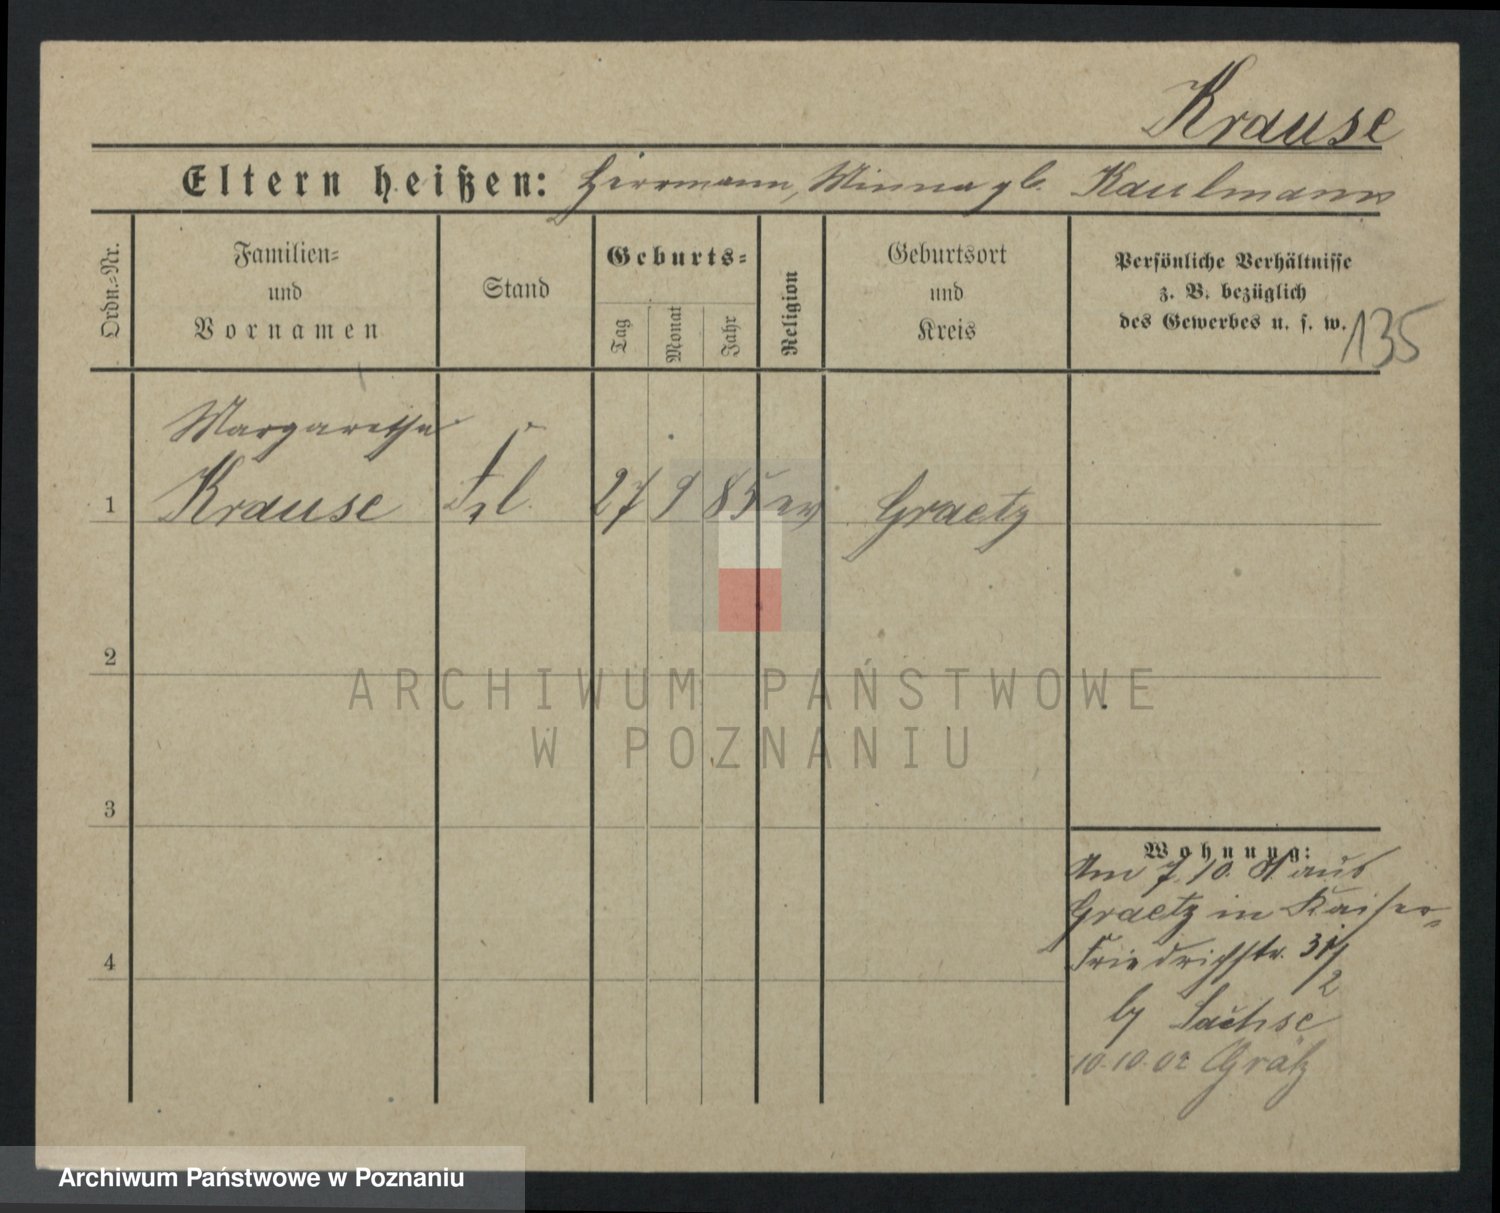 Krause
Eltern heißen: Herrmann, Minna gb. Kaulmann
Ordn.-Nr.
Familien-
und
Vornamen
Stand
Geburts-
Tag
Monat
Jahr
Religion
Geburtsort
und
Kreis
Persönliche Verhältnisse
z. B. bezüglich
des Gewerbes u. s. w.
135
Margarethe
1 Krause Frl. 27 9 85 ev Graetz
2
ARCHIWUM PAŃSTWOWE
W POZNANIU
3
Wohnung:
Am 7.10. aus
Graetz in Kaiser-
4
Friedrichstr. 31
2
by Sachse
10.10.02 Grätz
Archiwum Państwowe w Poznaniu